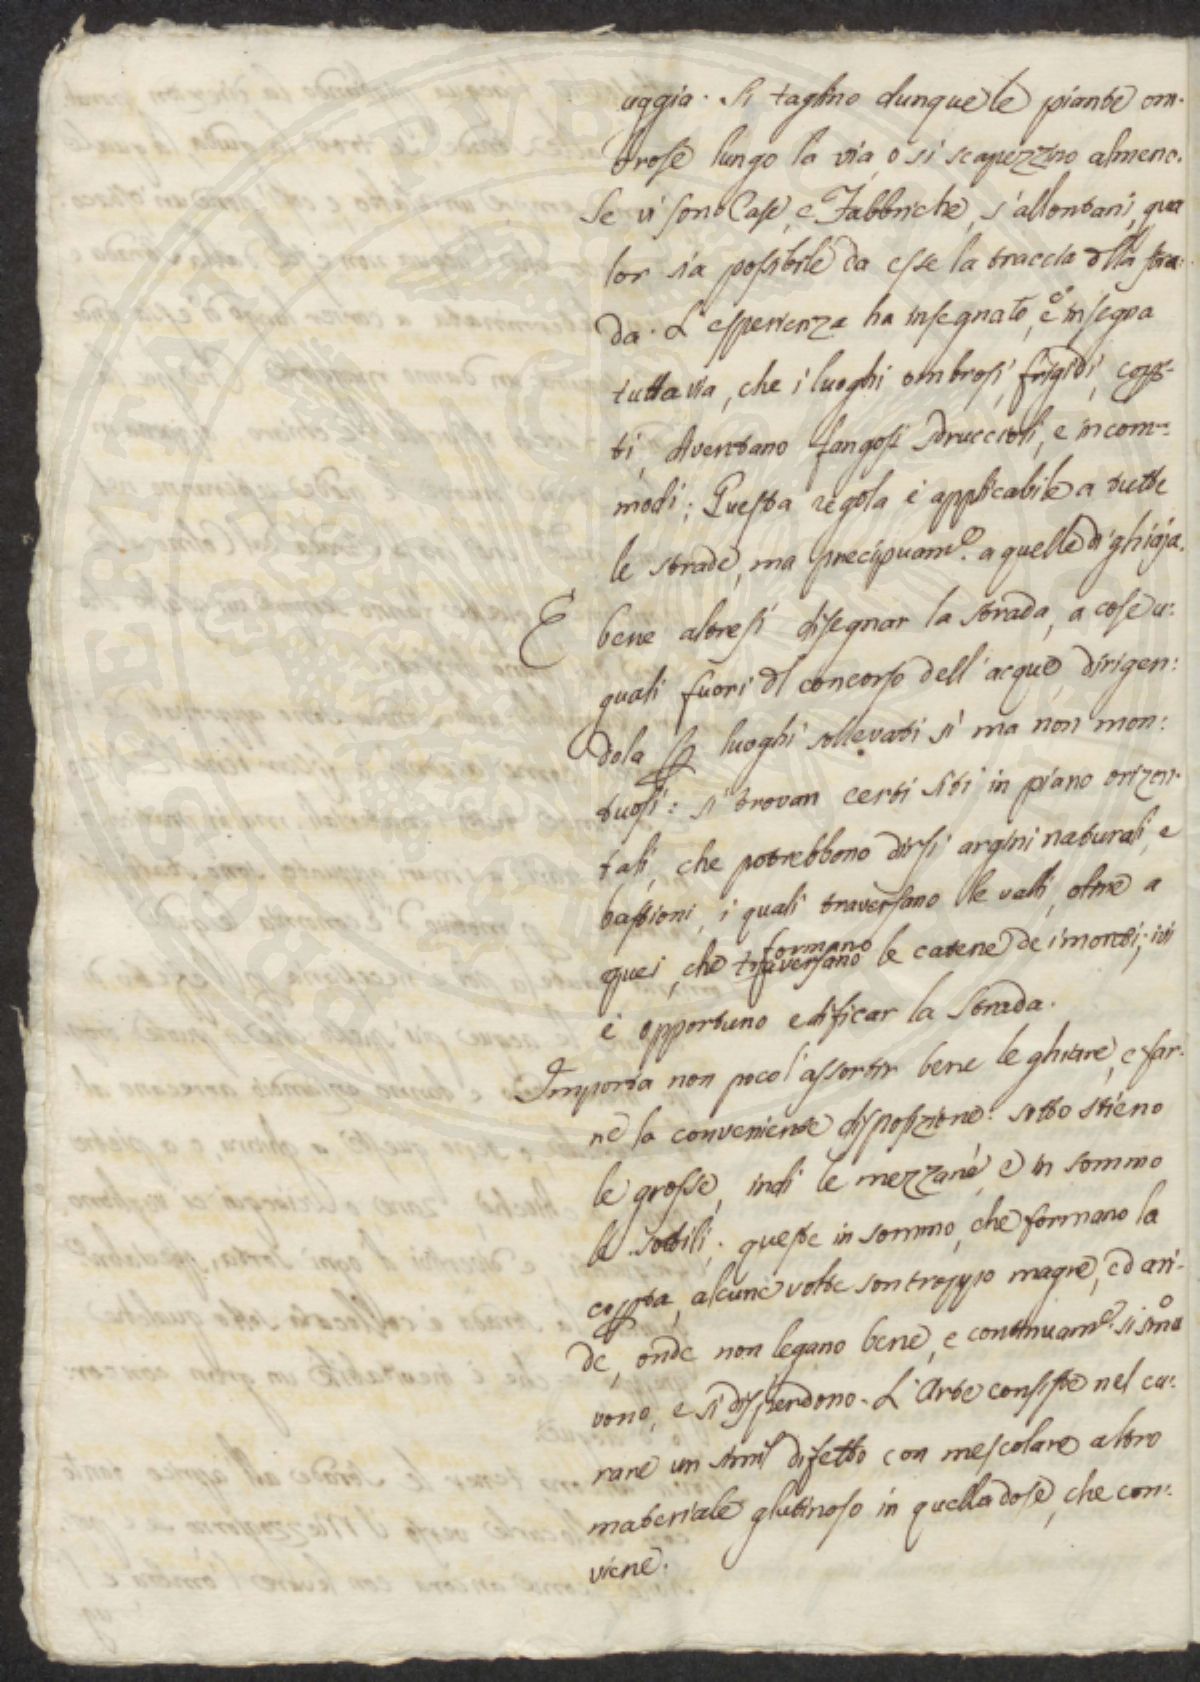 uggia. Si taglino dunque le piante om-
brose lungo la via, o si scapezzino almeno.
Se vi sono Case, e Fabbriche, s'allontani, qua
lor sia possibile da esse la traccia dlla stra:
da. L'esperienza ha insegnato, e insegna
tuttavia, che i luoghi ombrosi, frigidi, cope-
ti, diventano fangosi sdruccioli, e incom-
modi; Questa regola è applicabile a tutte
le strade, ma precipuam.e a quelle di ghiaja.
È bene altresì disegnar la strada, a cose u:
guali fuori dl concorso dell'acque, dirigen:
dola p luoghi sollevati sì ma non mon:
tuosi: si trovan certi siti in piano orizon-
tali, che potrebbono dirsi argini naturali, e
bastioni, i quali traversano le valli, oltre a
quei, che traversano formano le catene de i monti; ivi
è opportuno edificar la Strada.
Importa non poco l'assortir bene le ghiare, e far-
ne la conveniente disposizione: sotto stieno
le grosse, indi le mezzane, e in sommo
le sottili; queste in sommo, che formano la
crosta, alcune volte son troppo magre, ed ari-
de, onde non legano bene, e continuam.e si smo
vono, e si disperdono. L'Arte consiste nel cu:
rare un simil difetto con mescolare altro
materiale glutinoso in quella dose, che con:
viene.